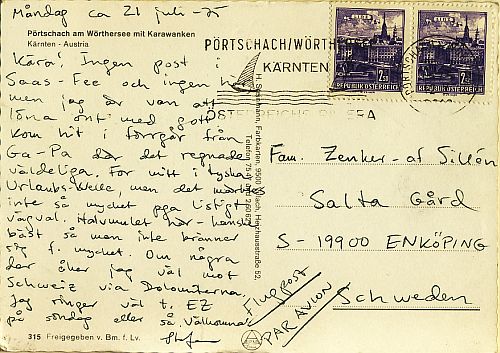 Måndag ca 21 juli -75
Pörtschach am Wörthersee mit Karawanken
Kärnten - Austria
Kära! Ingen post i
Saas-Fee och ingen här
men jag är van att
löna ont med gott
Kom hit i förrgår från
Ga-Pa där det regnade
väldeliga. För mitt i tyska
Urlaubs-welle, men det märktes
inte så mycket pga listigt
vägval. Halvmulet här - kanske
bäst så man inte bränner
sig f. mycket. Om några
dar åker jag väl mot
Schweiz via Dolomiterna.
Jag ringer väl t. EZ
på söndag eller så. Välkomna!
Stefan
315 Freigegeben v. Bm. f. Lv.
PÖRTSCHACH/WÖRTH
KÄRNTEN
ÖSTERREICHS RIVIERA
REPUBLIK ÖSTERREICH
REPUBLIK ÖSTERREICH
Farbkarten, 9500 Villach,
Telefon
Fam. Zenker-af Sillén
Salta Gård
S-19900 ENKÖPING
Schweden
Flugpost
PAR AVION